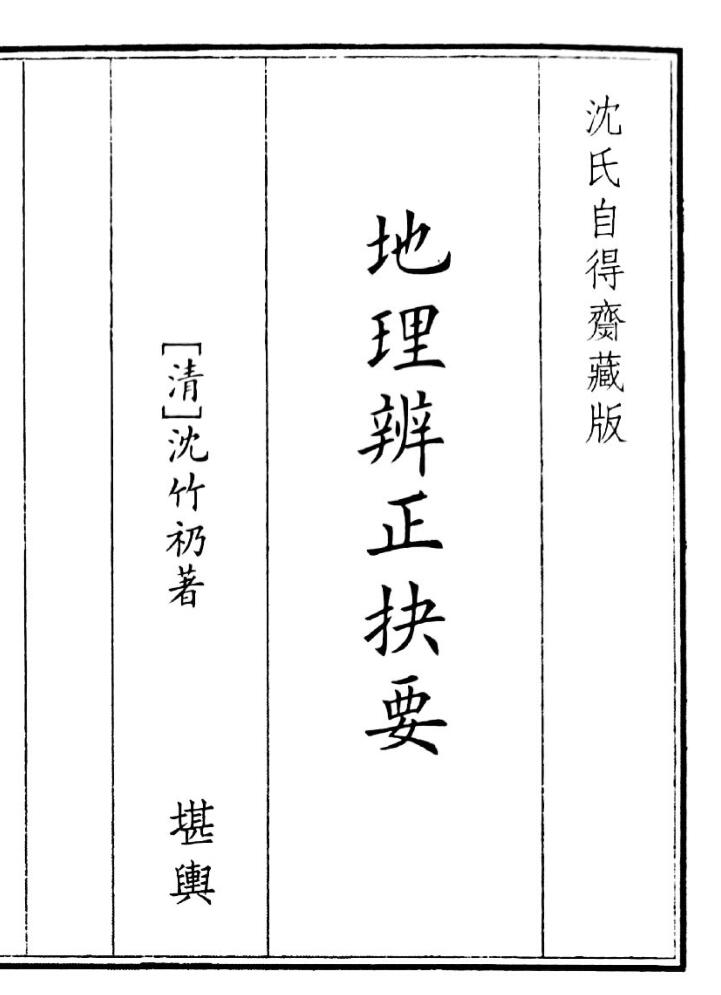 沈氏自得齋藏版
地理辨正抉要
[清]沈竹礽著
堪輿